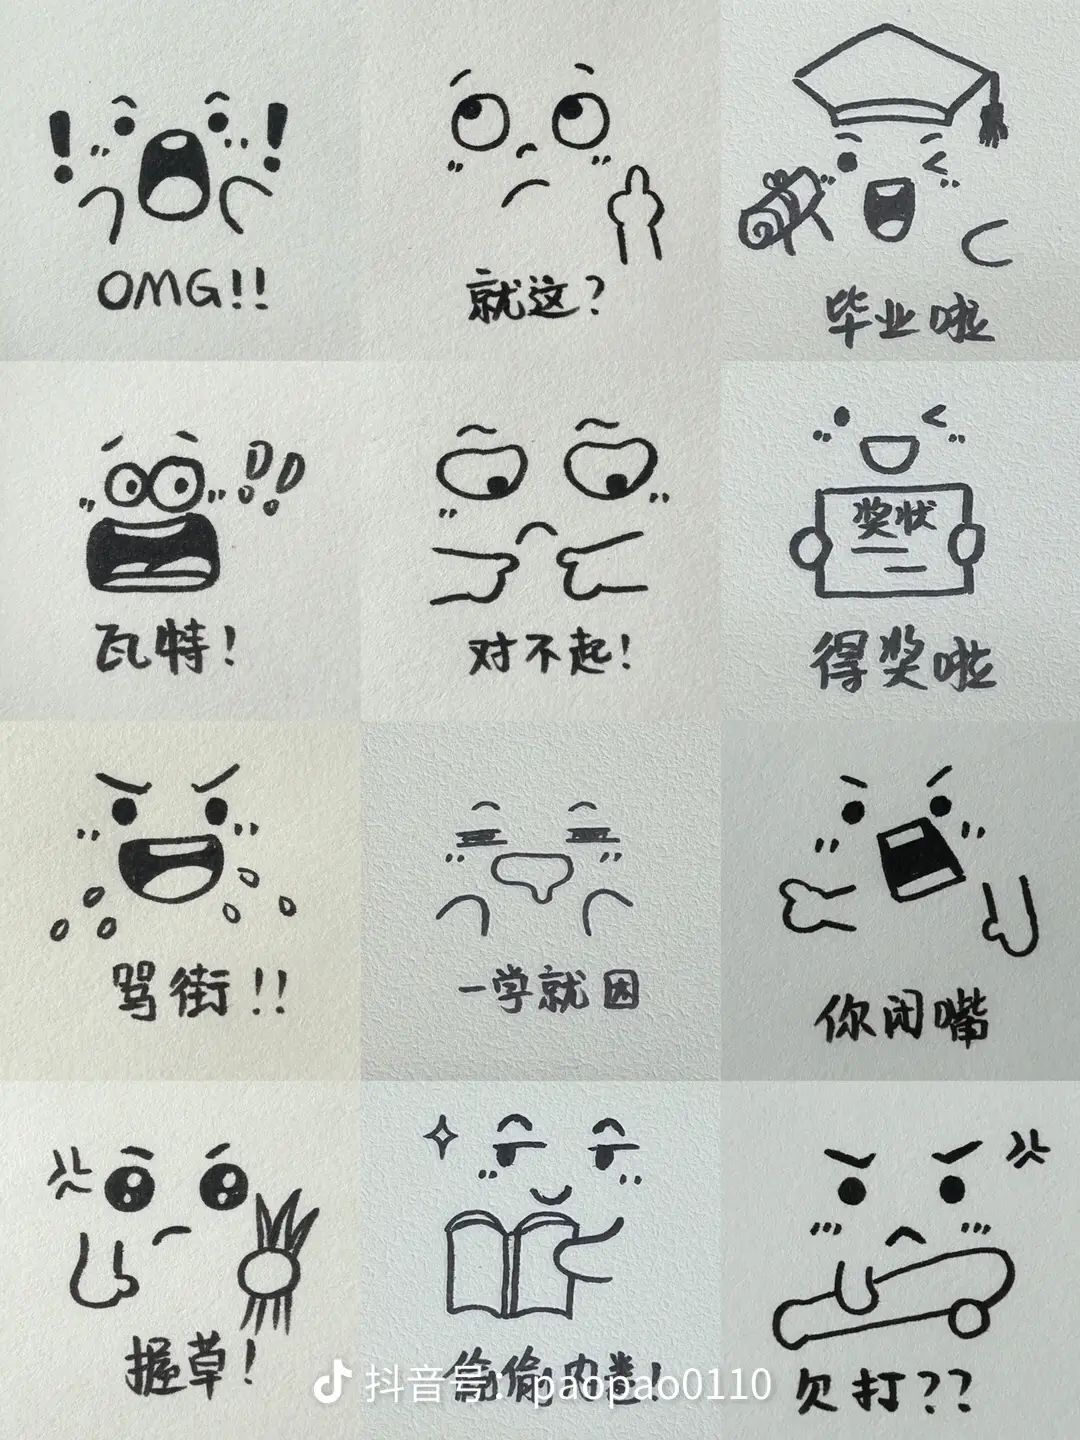 OMG!!
就这?
毕业啦
瓦特!
对不起!
奖状
得奖啦
骂街!!
一学就困
你闭嘴
握草!
偷偷内卷!
欠打??
抖音号: paopao0110